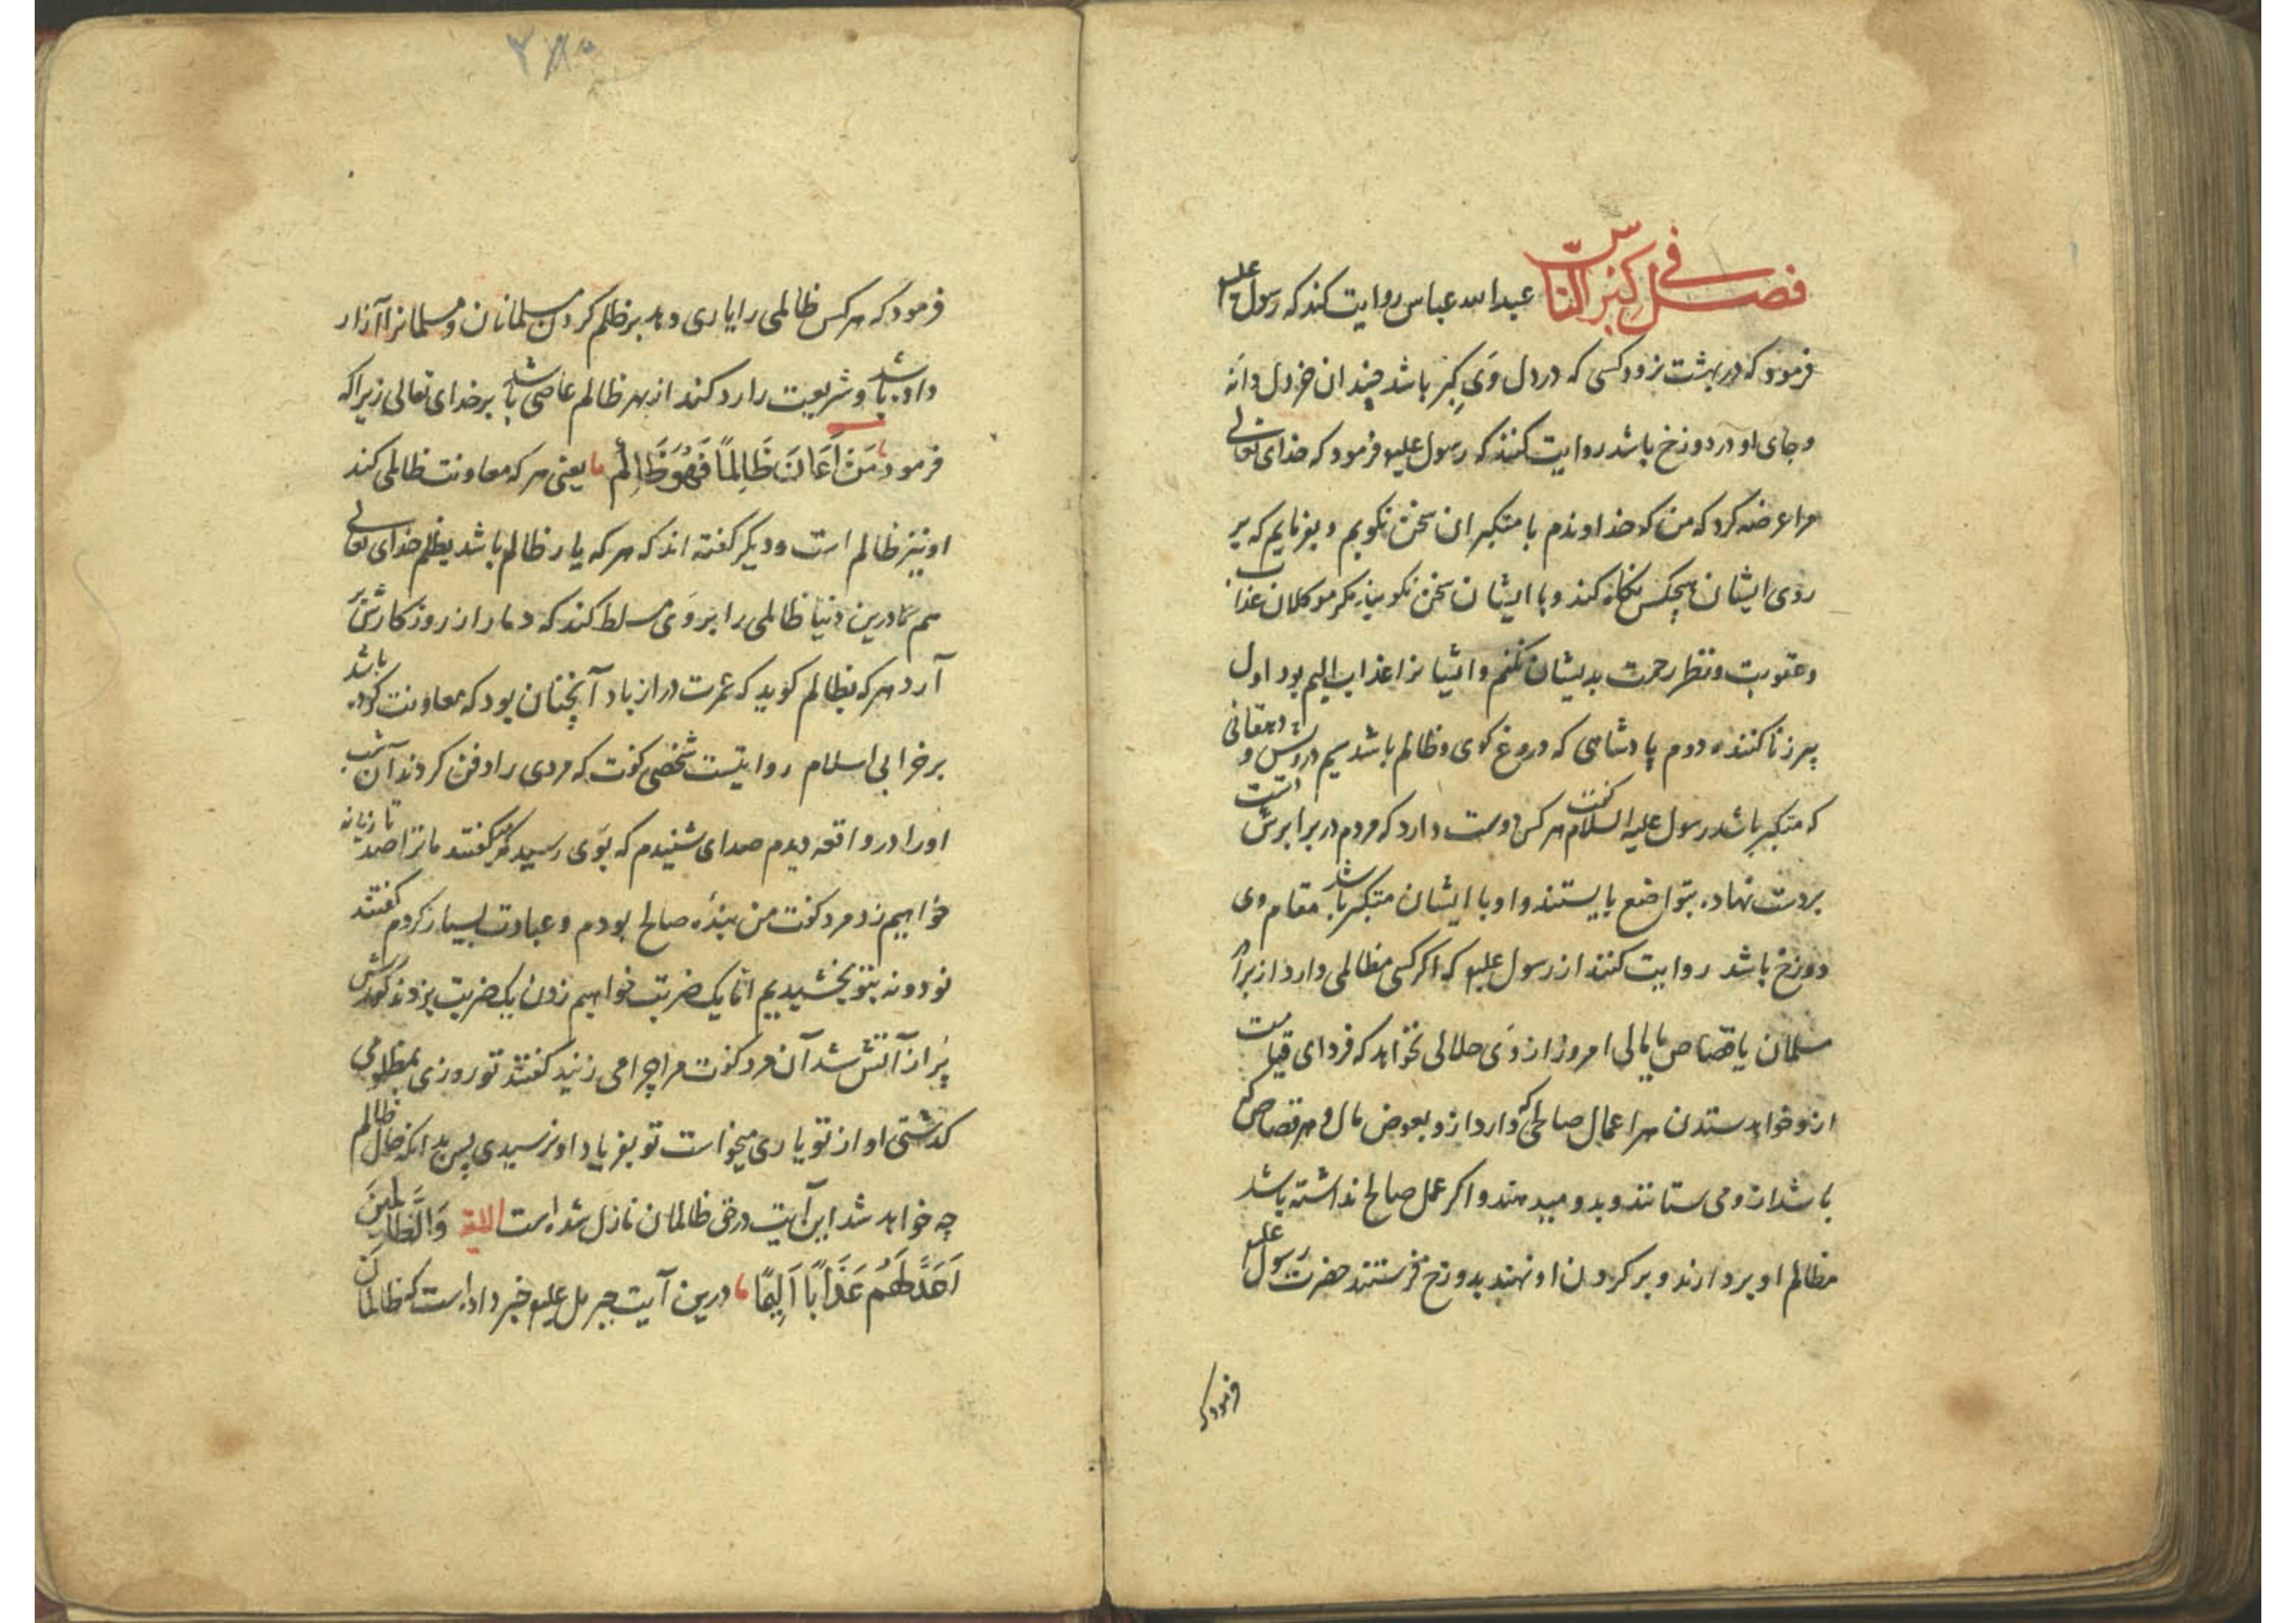 فصل فی کبر الناس عبدالله عباس روایت کند که رسول علیه
فرمود که در بهشت نرود کسی که در دل وَی کِبر باشد چندان خردل دانه
و جای او در دوزخ باشد روایت کنند که رسول علیه فرمود که خدای تعالی
مرا عرضه کرد که من که خداوندم با متکبران سخن نکویم و بفرمایم که بر
روی ایشان هیچکس نکاه نکند و با ایشان سخن نکویند مکر موکلان عذاب
و عقوبت و نظر رحمت بدیشان نکنم و ایشانرا عذاب الیم بود اول
پیر زنا کننده دوم پادشاهی که دروغ کوی و ظالم باشد سیم درویش و دهقانی
که متکبر باشد رسول علیه السلام کفت هر کس دوست دارد که مردم در برابرش دست
بر دست نهاده بتواضع بایستند و او با ایشان متکبر باشد مقام وی
دوزخ باشد روایت کنند از رسول علیه که اکر کسی مظالمی دارد از برای
مسلمان یا قصاص یا مالی امروز از وَی حلالی نخواهد که فردای قیامت
ازو خواهد ستدن هر اعمال صالحی که دارد ازو بعوض مال و هر قصاص که
باشد ازو می ستانند و بدو میدهند و اکر عمل صالح نداشته باشد
مظالم او بردارند و بر کردن او نهند بدوزخ فرستند حضرت رسول علیه
فرمود که
۲۸۰
فرمود که هر کس ظالمی را یاری دهد بر ظلم کردن مسلمانان و مسلمانرا آزار
داده باشد و شریعت را رد کند از بهر ظالم عاصی باشد بر خدای تعالی زیراکه
فرمود مَنْ اَعَانَ ظَالِمًا فَهُوَ ظَالِمٌ یعنی هر که معاونت ظالمی کند
او نیز ظالم است و دیکر کفته اند که هر که یار ظالم باشد بظلم خدای تعالی
هم در این دنیا ظالمی را بر وَی مسلط کند که دمار از روزکارش بر
آرد هر که بظالم کوید که عمرت دراز باد آنچنان بود که معاونت کرده باشد
بر خرابی اسلام روایتست شخصی کفت که مردی را دفن کردند آن شب
او را در واقعه دیدم صدای شنیدم که بوَی رسید که کفتند ما ترا صد تازیانه
خواهیم زد مرد کفت من بندهٔ صالح بودم و عبادت بسیار کردم کفتند
نود و نه بتو بخشیدیم اما یک ضربت خواهیم زدن یک ضربت بزدند کورش
پُر از آتش شد آن مرد کفت مرا چرا می زنید کفتند تو روزی بمظلومی
کذشتی او از تو یاری میخواست تو بفریاد او نرسیدی پس بدانکه حال ظالم
چه خواهد شد این آیت در حق ظالمان نازل شده است الایة وَالظَّالِمِینَ
اَعَدَّ لَهُمْ عَذَابًا اَلِیمًا در این آیت جبریل علیه خبر داده است که ظالمان